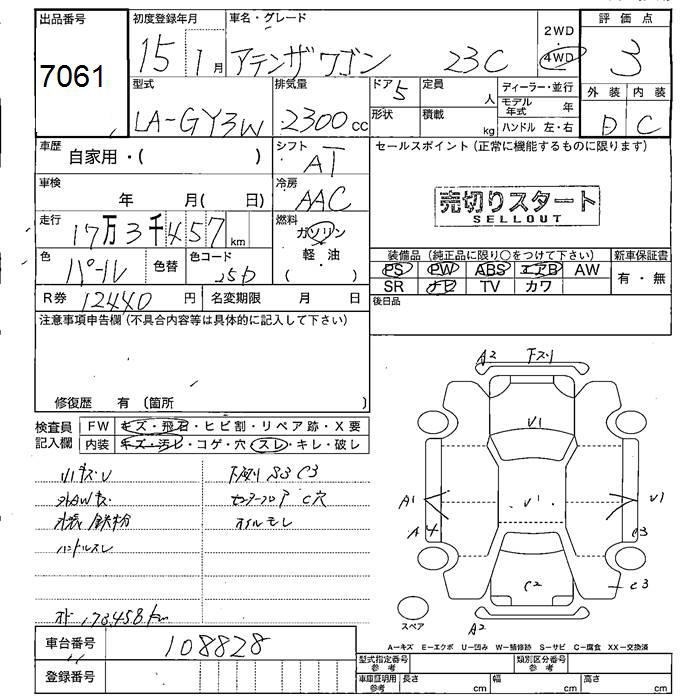 出品番号 初度登録年月 車名・グレード 2WD 評価点
7061 15 1月 アテンザワゴン 23C 4WD 3
型式 排気量 ドア 5 定員 人 ディーラー・並行 外装 内装
LA-GY3W 2300cc 形状 積載 kg モデル年式 年 D C
ハンドル 左・右
車歴 自家用・( ) シフト AT セールスポイント (正常に機能するものに限ります)
車検 年 月( 日) 冷房 AAC 売切りスタート
SELLOUT
走行 17万3千457km 燃料 ガソリン
軽・油
( )
色 パール 色替 色コード 25D 装備品 (純正品に限り○をつけて下さい) 新車保証書
PS PW ABS エアB AW 有・無
SR ナビ TV カワ
R券 12440円 名変期限 月 日 後日品
注意事項申告欄 (不具合内容等は具体的に記入して下さい)
修復歴 有 (箇所 )
検査員記入欄 FW キズ・飛石・ヒビ割・リペア跡・X要
内装 キズ・汚レ・コゲ・穴・スレ・キレ・破レ
小キズ・U 下廻り S3 C3
外AWキズ センターフロア C穴
外板鉄粉 オイルモレ
ハンドルスレ
オド 173458km
車台番号 108828
登録番号
A2 下スリ
V1
A1 V1 V1
A4 C3
C2 C3
スペア A2
A-キズ E-エクボ U-凹み W-補修跡 S-サビ C-腐食 XX-交換済
型式指定番号 参考 類別区分番号 参考
車庫証明用 参考 長さ cm 幅 cm 高さ cm